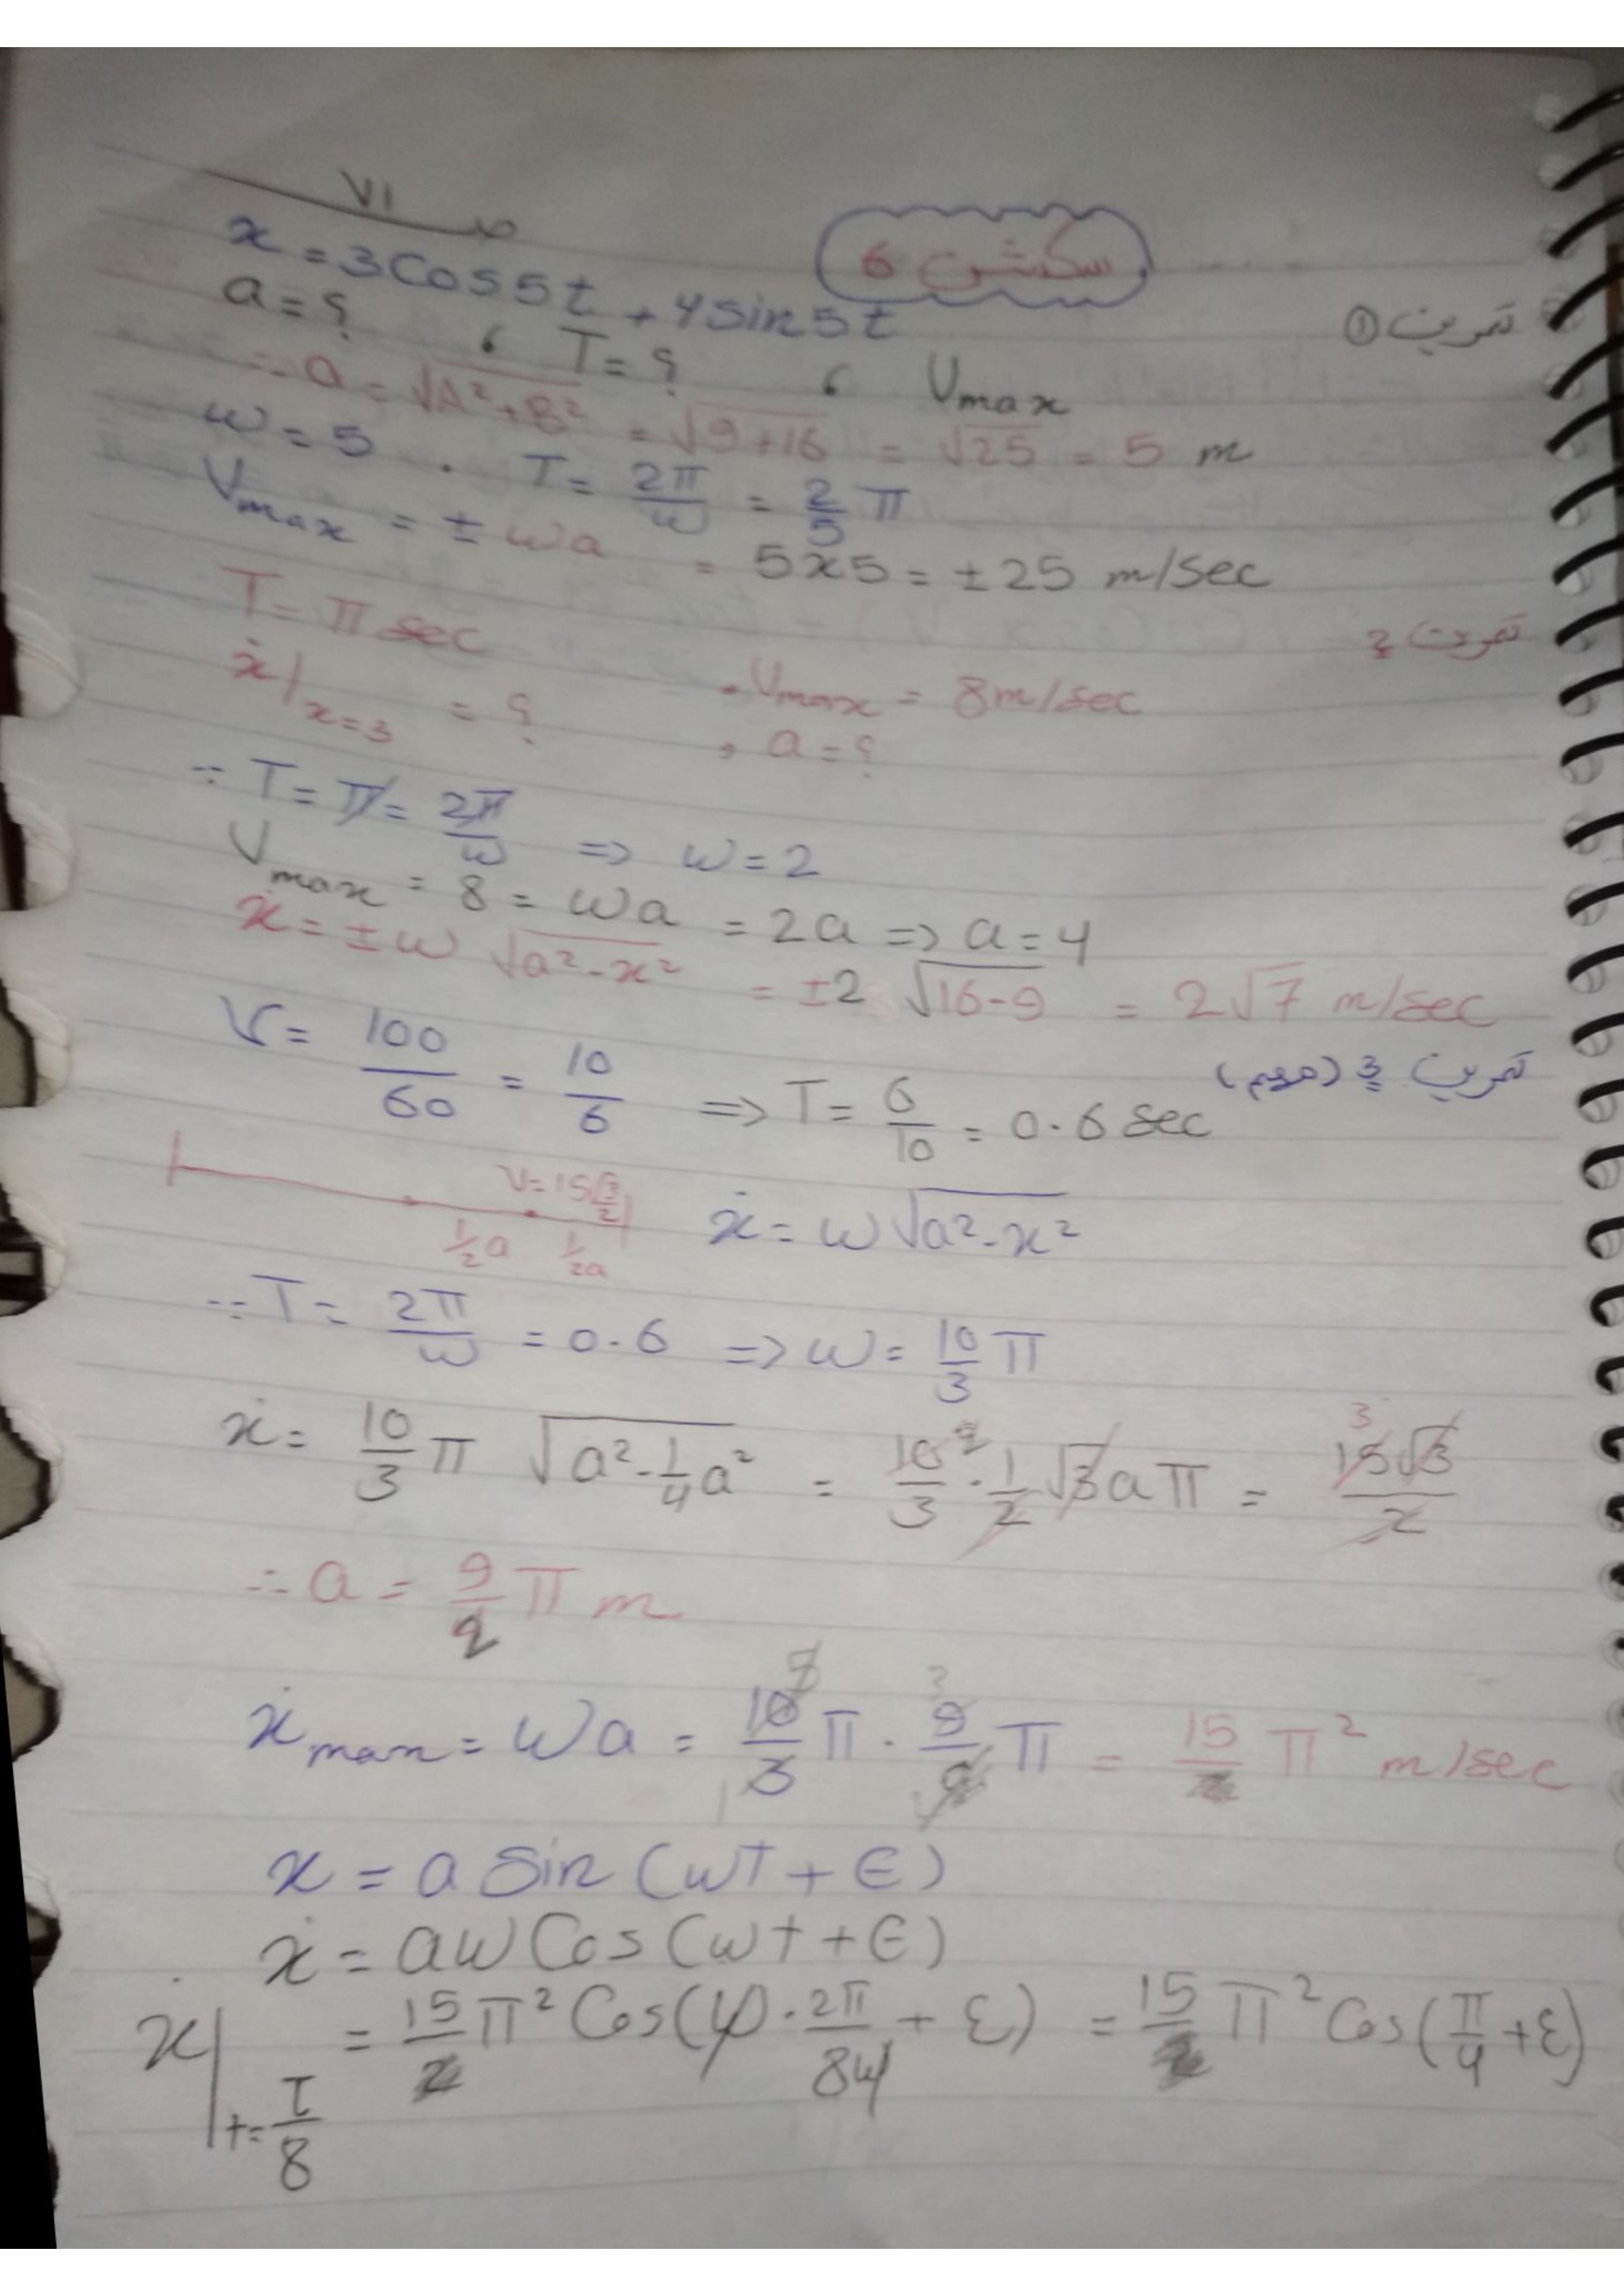 V1
سكشن 6
تمرين ①
x = 3Cos5t + 4sin5t
a = ? , T = ? , Vmax
∴ a = √(A²+B²) = √(9+16) = √25 = 5 m
ω = 5 . T = 2π/ω = 2/5 π
Vmax = ± ωa = 5x5 = ±25 m/sec
تمرين 2
T = π sec . Vmax = 8m/sec
ẋ|x=3 = ? , a = ?
∵ T = π = 2π/ω => ω = 2
Vmax = 8 = ωa = 2a => a = 4
ẋ = ±ω √(a²-x²) = ±2 √(16-9) = 2√7 m/sec
تمرين 3 (مهم)
V = 100/60 = 10/6 => T = 6/10 = 0.6 sec
V=15√3/2
1/2 a 1/2 a
ẋ = ω√(a²-x²)
∵ T = 2π/ω = 0.6 => ω = 10/3 π
ẋ = 10/3 π √(a²-1/4 a²) = 10/3 . 1/2 √3 a π = 15√3/2
∴ a = 9/2 π m
ẋmax = ωa = 10/3 π . 9/2 π = 15 π² m/sec
x = a Sin (ωt + ϵ)
ẋ = aω Cos (ωt + ϵ)
ẋ|t=T/8 = 15 π² Cos(ω . 2π/8ω + ε) = 15 π² Cos(π/4 + ε)